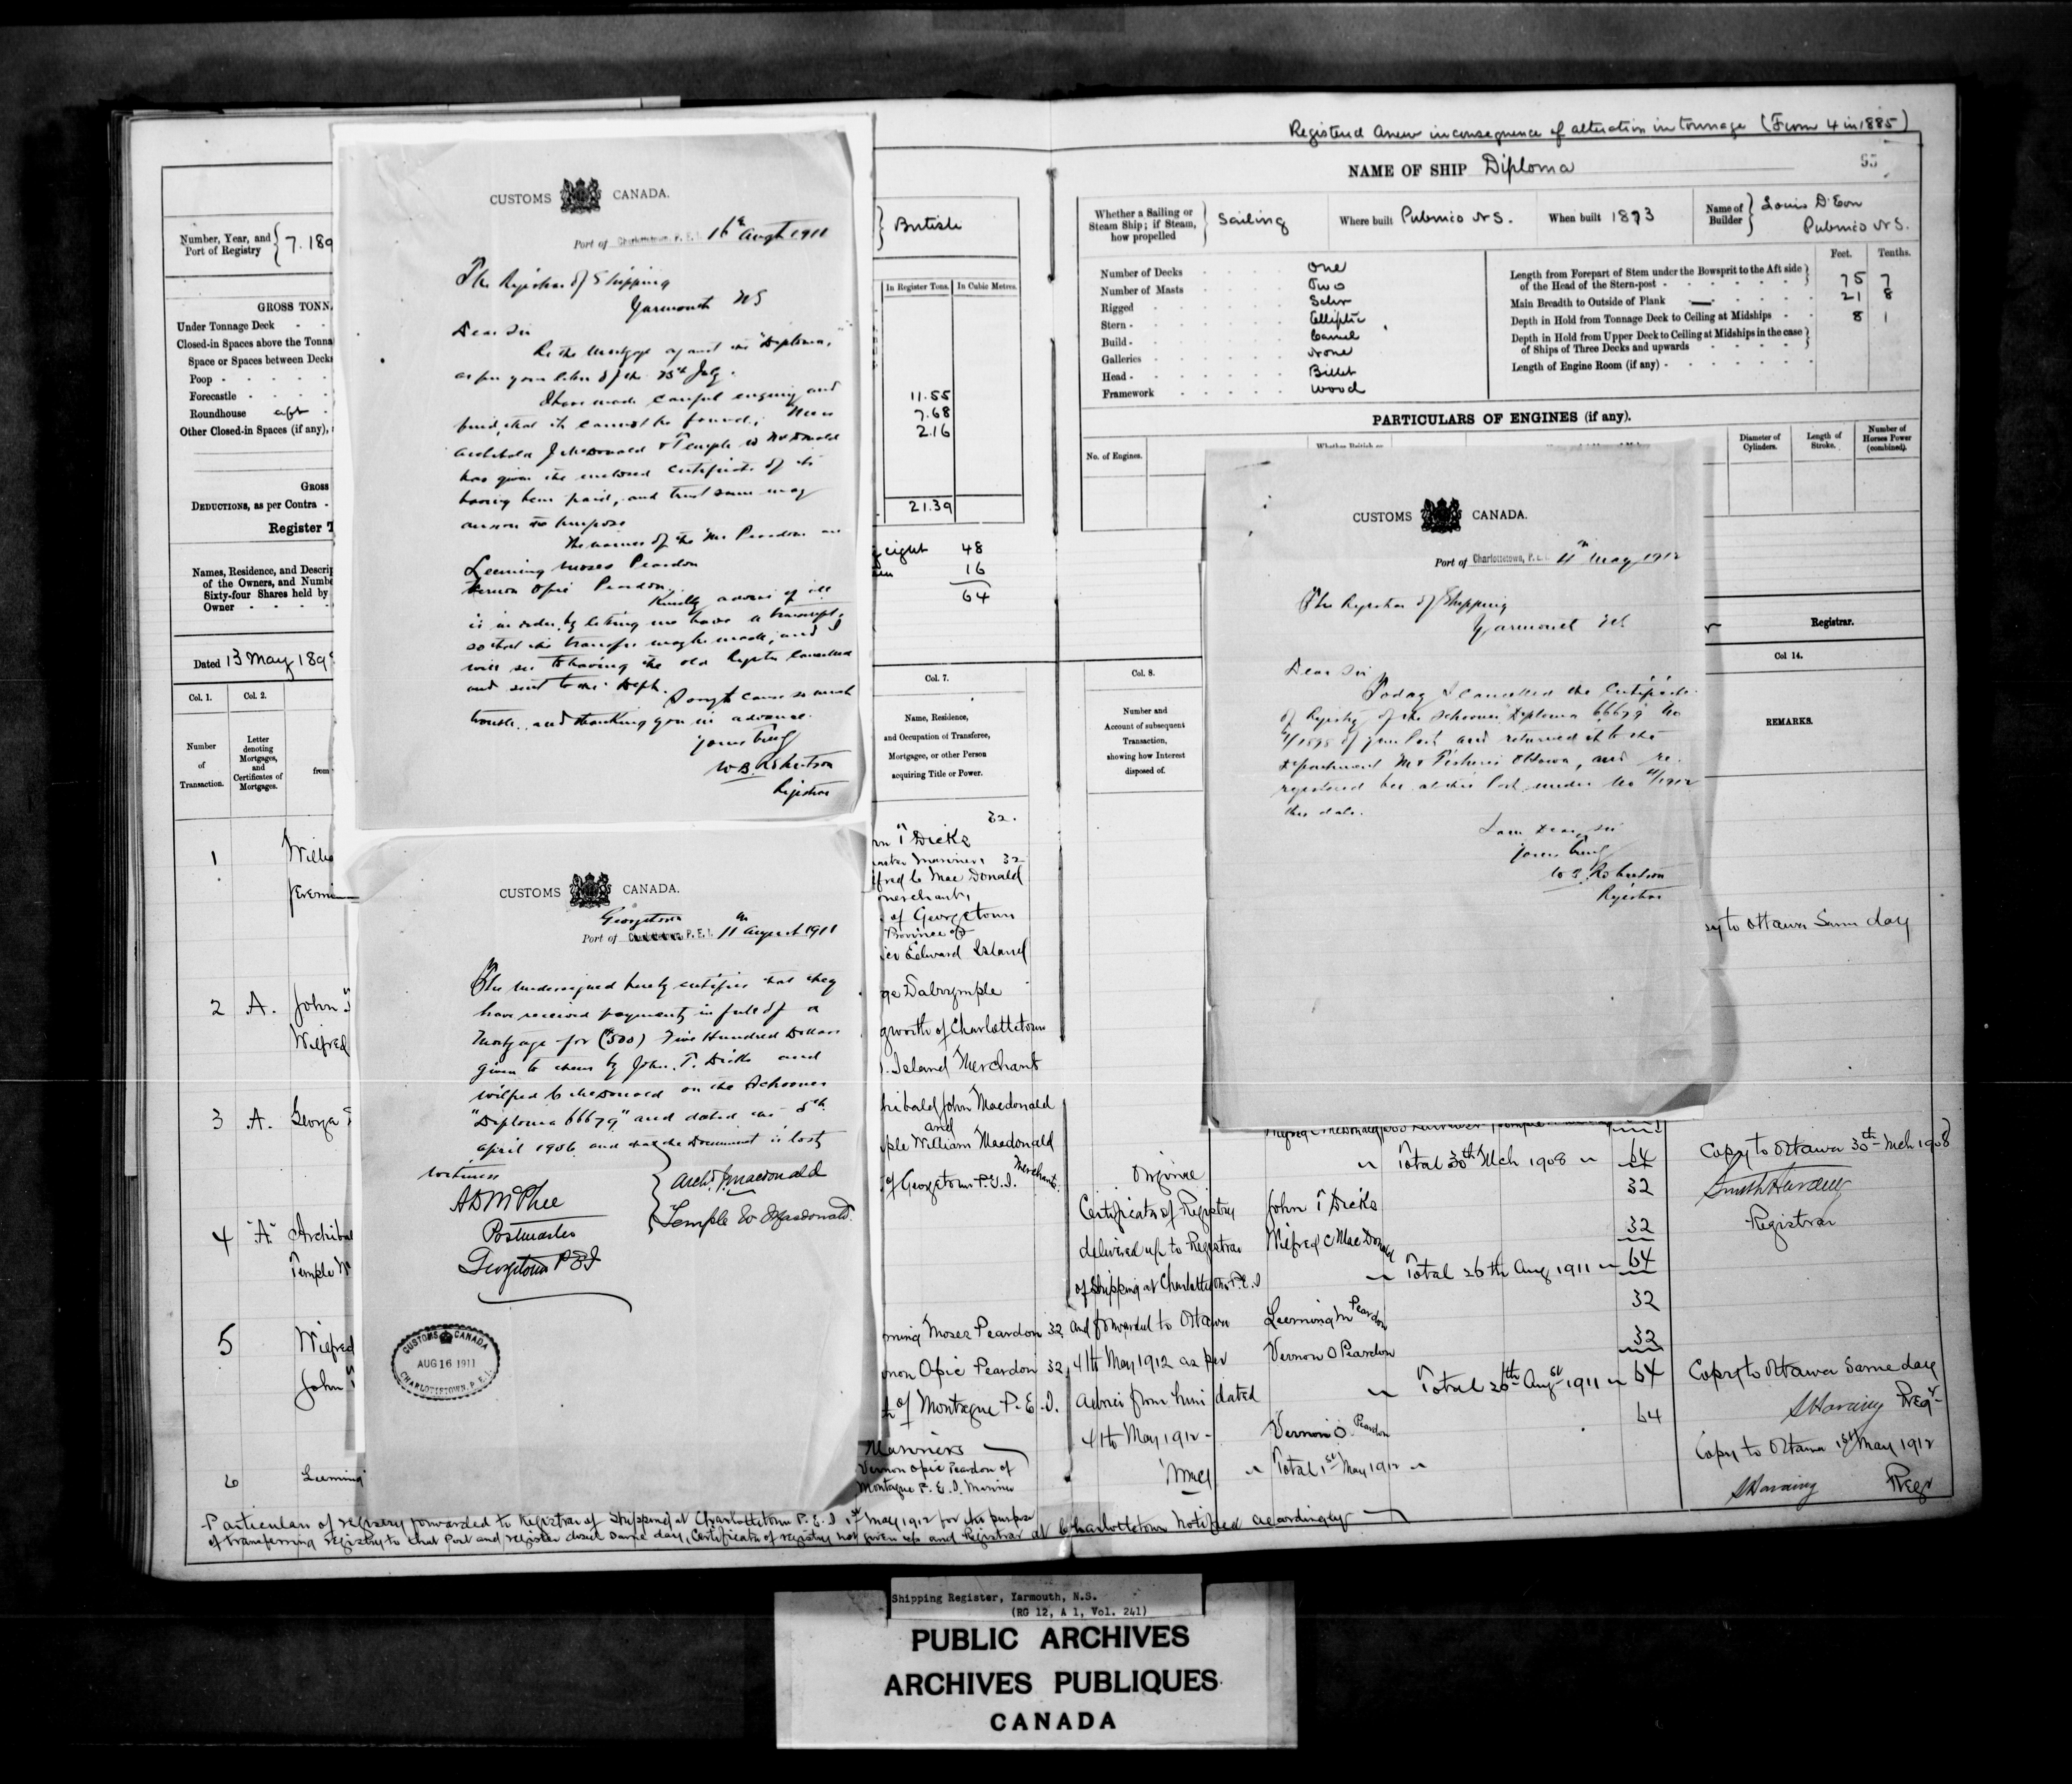 Registered Anew in consequence of alteration in tonnage (From 4 in 1885)
NAME OF SHIP Diploma
55
Number, Year, and
Port of Registry
7.189
British
Whether a Sailing or
Steam Ship; if Steam,
how propelled
Sailing
Where built Pubnico N.S.
When built 1873
Name of
Builder
Louis D'Eon
Pubnico N.S.
GROSS TONN
Under Tonnage Deck
Closed-in Spaces above the Tonna
Space or Spaces between Decks
Poop
Forecastle
Roundhouse aft
Other Closed-in Spaces (if any),
GROSS
DEDUCTIONS, as per Contra
Register T
In Register Tons. In Cubic Metres.
11.55
7.68
2.16
21.39
Number of Decks One
Number of Masts Two
Rigged Schr
Stern Elliptic
Build Carvel
Galleries None
Head Billet
Framework Wood
Feet. Tenths.
Length from Forepart of Stem under the Bowsprit to the Aft side
of the Head of the Stern-post 75 7
Main Breadth to Outside of Plank 21 8
Depth in Hold from Tonnage Deck to Ceiling at Midships 8 1
Depth in Hold from Upper Deck to Ceiling at Midships in the case
of Ships of Three Decks and upwards
Length of Engine Room (if any)
PARTICULARS OF ENGINES (if any).
No. of Engines.
Diameter of
Cylinders.
Length of
Stroke.
Number of
Horses Power
(combined).
Names, Residence, and Descrip
of the Owners, and Numbe
Sixty-four Shares held by
Owner
eight 48
16
64
Registrar.
Dated 13 May 189
Col. 1. Col. 2. Col. 7. Col. 8. Col 14.
Number
of
Transaction.
Letter
denoting
Mortgages,
and
Certificates of
Mortgages.
from
Name, Residence,
and Occupation of Transferee,
Mortgagee, or other Person
acquiring Title or Power.
Number and
Account of subsequent
Transaction,
showing how Interest
disposed of.
REMARKS.
CUSTOMS CANADA.
Port of Charlottetown, P.E.I. 16th Augt 1911
The Registrar of Shipping
Yarmouth NS
Dear Sir
Re the Mortgage against the "Diploma,"
as per your letter of the 25th July.
I have made careful enquiry and
find that it cannot be found; Mess
Archibald J McDonald & Temple W McDonald
has given the enclosed Certificate of its
having been paid, and trust same may
answer the purpose
The names of the Mr Peardons are
Leeming Moses Peardon
Vernon Opie Peardon.
Kindly advise if all
is in order, by letting me have a transcript,
so that the transfer may be made, and I
will see to having the old Register Cancelled
and sent to the Dept.
Sorry to cause so much
trouble, and thanking you in advance.
Yours truly
W.B. Robertson
Registrar
CUSTOMS CANADA.
Georgetown
Port of Charlottetown, P.E.I. 11th August 1911
The Undersigned hereby certifies that they
have received payment in full of a
Mortgage for ($500) Five Hundred Dollars
given to them by John T. Dicks and
Wilfred C McDonald on the Schooner
"Diploma 66679" and dated the 5th
April 1906 and that the Document is lost
Witness
A D McPhee
Postmaster
Georgetown P E I
Archd. J. Macdonald
Temple W Macdonald
CUSTOMS CANADA
AUG 16 1911
CHARLOTTETOWN, P.E.I.
CUSTOMS CANADA.
Port of Charlottetown, P.E.I. 4th May 1912
The Registrar of Shipping
Yarmouth NS
Dear Sir
Today I cancelled the Certificate
of Registry of the Schooner "Diploma" 66679 No
7/1898 of your Port and returned it to the
Department M & Fisheries Ottawa, and re-
registered her at this Port under No 4/1912
this date.
I am Dear Sir
Yours truly
W B. Robertson
Registrar
1 Willia
Jeremi
32.
hn T Dicks
Master Mariner 32
fred C MacDonald
merchant,
of Georgetown
Province of
ce Edward Island
Copy to Ottawa Same day
2 A. John T
Wilfred
ge Dalrymple
gworth of Charlottetown
. Island Merchant
3 A. George
hibald John Macdonald
and
ple William Macdonald
of Georgetown P.E.I. Merchants
Total 30th Mch 1908 64
Copy to Ottawa 30th Mch 1908
Smith Harding
Registrar
4 "A" Archibal
Temple W
Original
Certificate of Registry
delivered up to Registrar
of Shipping at Charlottetown P.E.I
and forwarded to Ottawa
4th May 1912 as per
advice from him dated
4th May 1912
John T Dicks 32
Wilfred C MacDonald 32
Total 26th Aug 1911 64
5 Wilfred
John T
ming Moses Peardon 32
non Opie Peardon 32
of Montague P.E.I.
Mariners
Leeming M Peardon 32
Vernon O Peardon 32
Total 26th Augst 1911 64
Copy to Ottawa Same day
S Harding Regr
6 Leeming
Vernon Opie Peardon of
Montague P.E.I. Mariner
Vernon O. Peardon 64
Total 1st May 1912
Copy to Ottawa 1st May 1912
S Harding Regr
Particulars of registry forwarded to Registrar of Shipping at Charlottetown P.E.I 1st May 1912 for the purpose
of transferring registry to that Port and register closed same day, Certificate of registry not given up and Registrar at Charlottetown notified accordingly
Shipping Register, Yarmouth, N.S.
(RG 12, A 1, Vol. 241)
PUBLIC ARCHIVES
ARCHIVES PUBLIQUES
CANADA